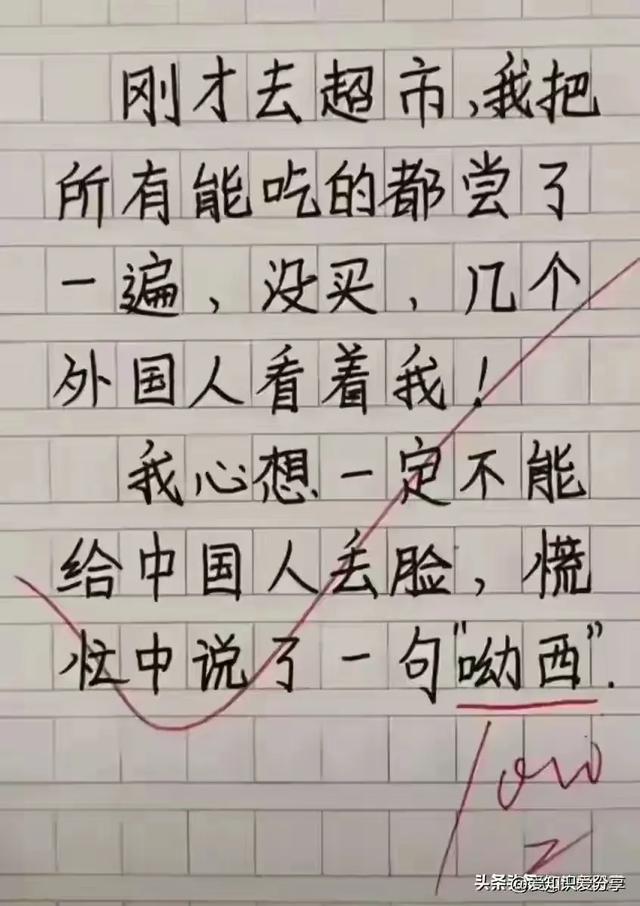 刚才去超市,我把
所有能吃的都尝了
一遍，没买，几个
外国人看着我！
我心想一定不能
给中国人丢脸，慌
忙中说了一句“呦西”.
头条 @爱知识爱分享